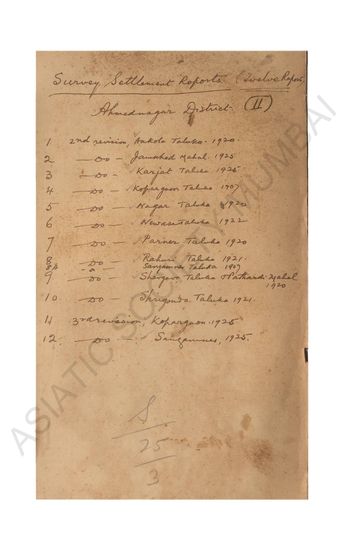 Survey Settlement Reports (Twelve Reports)
Ahmednagar District. (11)
1 2nd revision, Ankola Taluka. 1920
2 — Do — Jamkhed Mahal. 1925
3 — Do — Karjat Taluka 1925
4 — Do — Kopargaon Taluka 1907
5 — Do — Nagar Taluka 1920
6 — Do — Newasa Taluka 1922
7 — Do — Parner Taluka 1920
8 — Do — Rahuri Taluka 1921.
8A — Do — Sangamner Taluka 1907
9 — Do — Shevgaon Taluka & Pathardi Mahal
1920
10 — Do — Shrigonda Taluka 1921.
11 3rd revision, Kopargaon. 1925
12. — Do — Sangamner, 1925.
S.
25
3
ASIATIC SOCIETY MUMBAI